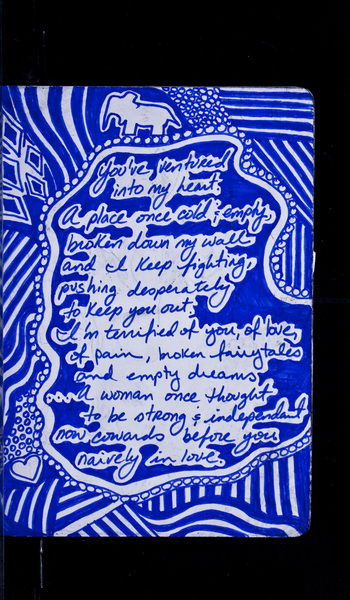 You've ventured
into my heart.
A place once cold & empty,
broken down my wall
and I keep fighting,
pushing desperately
to keep you out.
I'm terrified of you, of love,
of pain, broken fairytales
and empty dreams
....A woman once thought
to be strong & independant
now cowards before you
naively in love.